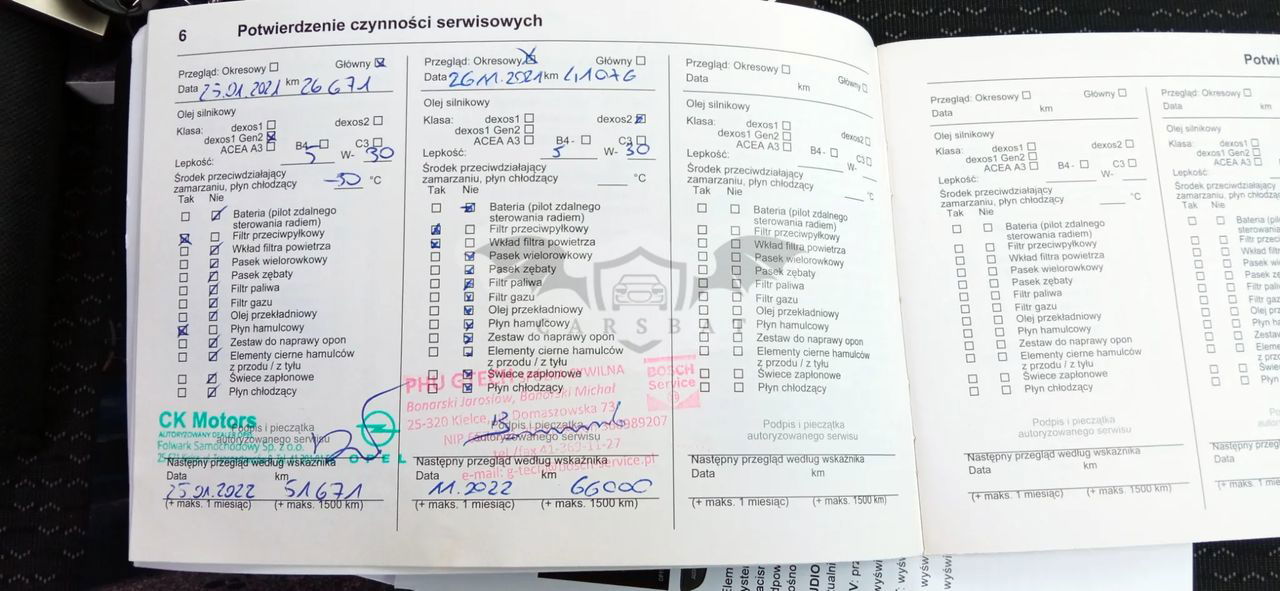 6 Potwierdzenie czynności serwisowych
Przegląd: Okresowy Główny
Data 25.01.2021 km 26671
Olej silnikowy
Klasa: dexos1 dexos2
dexos1 Gen2
ACEA A3 B4- C3
Lepkość: 5 W- 30
Środek przeciwdziałający
zamarzaniu, płyn chłodzący -30 °C
Tak Nie
Bateria (pilot zdalnego
sterowania radiem)
Filtr przeciwpyłkowy
Wkład filtra powietrza
Pasek wielorowkowy
Pasek zębaty
Filtr paliwa
Filtr gazu
Olej przekładniowy
Płyn hamulcowy
Zestaw do naprawy opon
Elementy cierne hamulców
z przodu / z tyłu
Świece zapłonowe
Płyn chłodzący
CK Motors
AUTORYZOWANY DEALER OPEL
Podpis i pieczątka
autoryzowanego serwisu
Folwark Samochodowy Sp. z o.o.
OPEL
Następny przegląd według wskaźnika
Data km
25.01.2022 51671
(+ maks. 1 miesiąc) (+ maks. 1500 km)
Przegląd: Okresowy Główny
Data 26.11.2021 km 41076
Olej silnikowy
Klasa: dexos1 dexos2
dexos1 Gen2
ACEA A3 B4- C3
Lepkość: 5 W- 30
Środek przeciwdziałający
zamarzaniu, płyn chłodzący °C
Tak Nie
Bateria (pilot zdalnego
sterowania radiem)
Filtr przeciwpyłkowy
Wkład filtra powietrza
Pasek wielorowkowy
Pasek zębaty
Filtr paliwa
Filtr gazu
Olej przekładniowy
Płyn hamulcowy
Zestaw do naprawy opon
Elementy cierne hamulców
z przodu / z tyłu
Świece zapłonowe
Płyn chłodzący
PHU
BOSCH
Service
Bonarski Jarosław, Bonarski Michał
25-320 Kielce, Domaszowska 73
NIP
Podpis i pieczątka
autoryzowanego serwisu
tel./fax 41-369-11-27
e-mail: g-tech@bosch-service.pl
Następny przegląd według wskaźnika
Data km
11.2022 66000
(+ maks. 1 miesiąc) (+ maks. 1500 km)
Przegląd: Okresowy Główny
Data km
Olej silnikowy
Klasa: dexos1 dexos2
dexos1 Gen2
ACEA A3 B4- C3
Lepkość: W-
Środek przeciwdziałający
zamarzaniu, płyn chłodzący °C
Tak Nie
Bateria (pilot zdalnego
sterowania radiem)
Filtr przeciwpyłkowy
Wkład filtra powietrza
Pasek wielorowkowy
Pasek zębaty
Filtr paliwa
Filtr gazu
Olej przekładniowy
Płyn hamulcowy
Zestaw do naprawy opon
Elementy cierne hamulców
z przodu / z tyłu
Świece zapłonowe
Płyn chłodzący
Podpis i pieczątka
autoryzowanego serwisu
Następny przegląd według wskaźnika
Data km
(+ maks. 1 miesiąc) (+ maks. 1500 km)
CARSBAT
Potwi
Przegląd: Okresowy Główny
Data km
Olej silnikowy
Klasa: dexos1 dexos2
dexos1 Gen2
ACEA A3 B4- C3
Lepkość: W-
Środek przeciwdziałający
zamarzaniu, płyn chłodzący °C
Tak Nie
Bateria (pilot zdalnego
sterowania radiem)
Filtr przeciwpyłkowy
Wkład filtra powietrza
Pasek wielorowkowy
Pasek zębaty
Filtr paliwa
Filtr gazu
Olej przekładniowy
Płyn hamulcowy
Zestaw do naprawy opon
Elementy cierne hamulców
z przodu / z tyłu
Świece zapłonowe
Płyn chłodzący
Podpis i pieczątka
autoryzowanego serwisu
Następny przegląd według wskaźnika
Data km
(+ maks. 1 miesiąc) (+ maks. 1500 km)
Przegląd: Okresowy
Data km
Olej silnikowy
Klasa: dexos1
dexos1 Gen2
ACEA A3
Lepkość:
Środek przeciwdziałają
zamarzaniu, płyn chło
Tak Nie
Bateria (pi
sterowania
Filtr przec
Wkład filtr
Pasek wi
Pasek z
Filtr pali
Filtr ga
Olej prz
Płyn h
Zesta
Eleme
z prz
Świe
Pły
Następny przegląd
Data
(+ maks. 1 mie